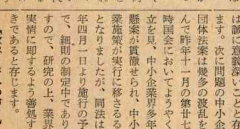 は誠に意義深いこと
ます。次に問題の中小企
団体法案は幾多の波乱を
んで昨年十一月の第廿七
時国会においてようやく
立を見、中小企業界多年
懸案が貫徹せられ、中小
業施策が実行に移さるる
となりましたが、同法は
年四月一日より施行の予
で、細則の制定中であり
すので、研究の上、業界
実情に即するよう善処す
きであると存じます。